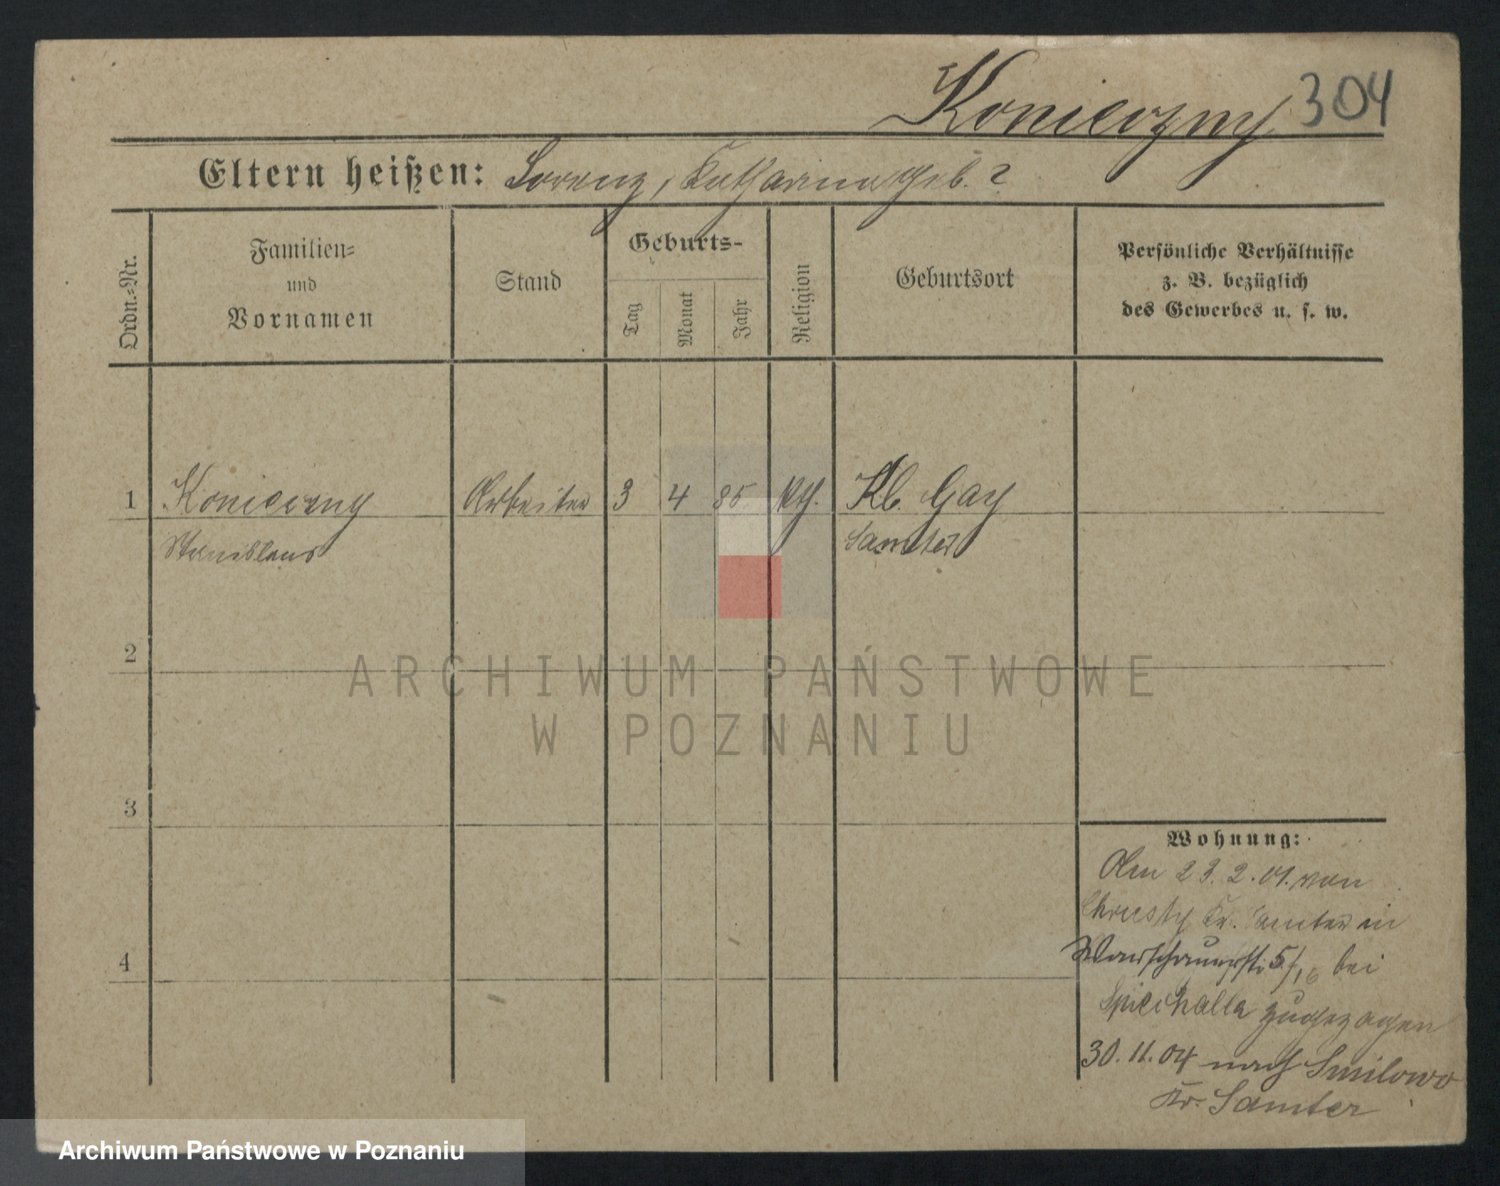 Konieczny 304
Eltern heißen: Lorenz, Katharina geb. ?
Ordn.-Nr.
Familien-
und
Vornamen
Stand
Geburts-
Tag
Monat
Jahr
Religion
Geburtsort
Persönliche Verhältnisse
z. B. bezüglich
des Gewerbes u. s. w.
1 Konieczny Arbeiter 3 4 85. kth. Kl. Gay
Stanislaus Samter
2
ARCHIWUM PAŃSTWOWE
W POZNANIU
3
Wohnung:
Am 23.2.01. von
Chrusty Kr. Samter in
4
Warschauerstr. 5/16 bei
zugezogen
30.11.04 nach Smilowo
Kr. Samter
Archiwum Państwowe w Poznaniu